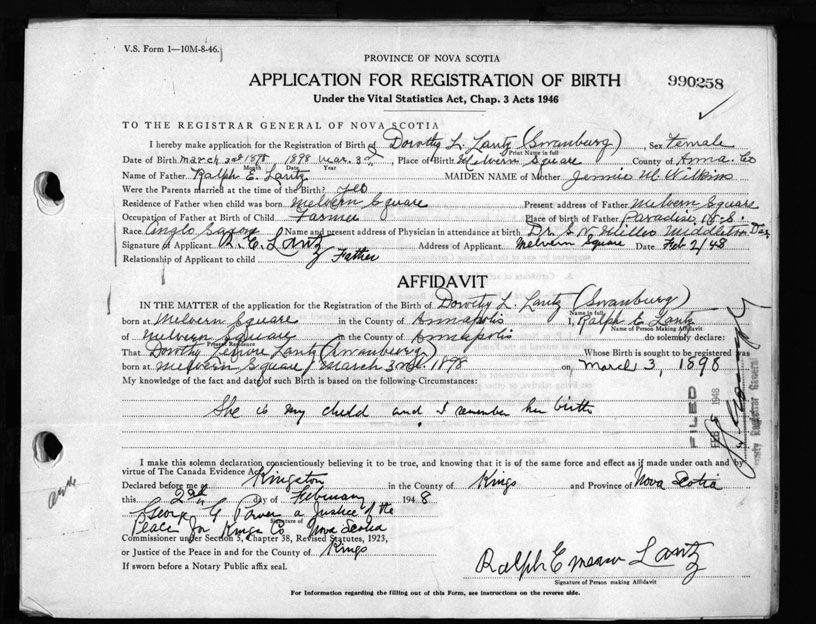 V.S. Form 1—10M-8-46.
PROVINCE OF NOVA SCOTIA
APPLICATION FOR REGISTRATION OF BIRTH
990258
Under the Vital Statistics Act, Chap. 3 Acts 1946
TO THE REGISTRAR GENERAL OF NOVA SCOTIA
I hereby make application for the Registration of Birth of Dorothy L. Lantz (Swanburg), Sex female
Print Name in full
Date of Birth March 3rd 1898 1898 Mar. 3rd, Place of Birth Melvern Square County of Anna. Co
Month Date Year
Name of Father Ralph E. Lantz MAIDEN NAME of Mother Jennie M Wilkins
Were the Parents married at the time of the Birth? Yes
Residence of Father when child was born Melvern Square Present address of Father Melvern Square
Occupation of Father at Birth of Child Farmer Place of birth of Father Paradise N.S.
Race Anglo Saxon Name and present address of Physician in attendance at birth Dr. S. N. Miller Middleton
Signature of Applicant R. E. Lantz Address of Applicant Melvern Square Date Feb 2/48
Relationship of Applicant to child Father
AFFIDAVIT
IN THE MATTER of the application for the Registration of the Birth of Dorothy L. Lantz (Swanburg)
Name in full
born at Melvern Square in the County of Annapolis I, Ralph E Lantz
Name of Person Making Affidavit
of Melvern Square in the County of Annapolis do solemnly declare:
Present Residence
That Dorothy Lantz (Swanburg) Whose Birth is sought to be registered was
born at Melvern Square March 3rd. 1898 on March 3, 1898
My knowledge of the fact and date of such Birth is based on the following Circumstances:
She is my child and I remember her birth
FILED
FEB 1948
Deputy Registrar General
I make this solemn declaration conscientiously believing it to be true, and knowing that it is of the same force and effect as if made under oath and by
virtue of The Canada Evidence Act.
Declared before me at Kingston in the County of Kings and Province of Nova Scotia
this 2nd day of February 1948
George G Power a Justice of the
Peace for Kings Co Nova Scotia
Signature of
Commissioner under Section 5, Chapter 38, Revised Statutes, 1923,
or Justice of the Peace in and for the County of Kings
If sworn before a Notary Public affix seal.
Ralph Emerson Lantz
Signature of Person making Affidavit
For Information regarding the filling out of this Form, see instructions on the reverse side.